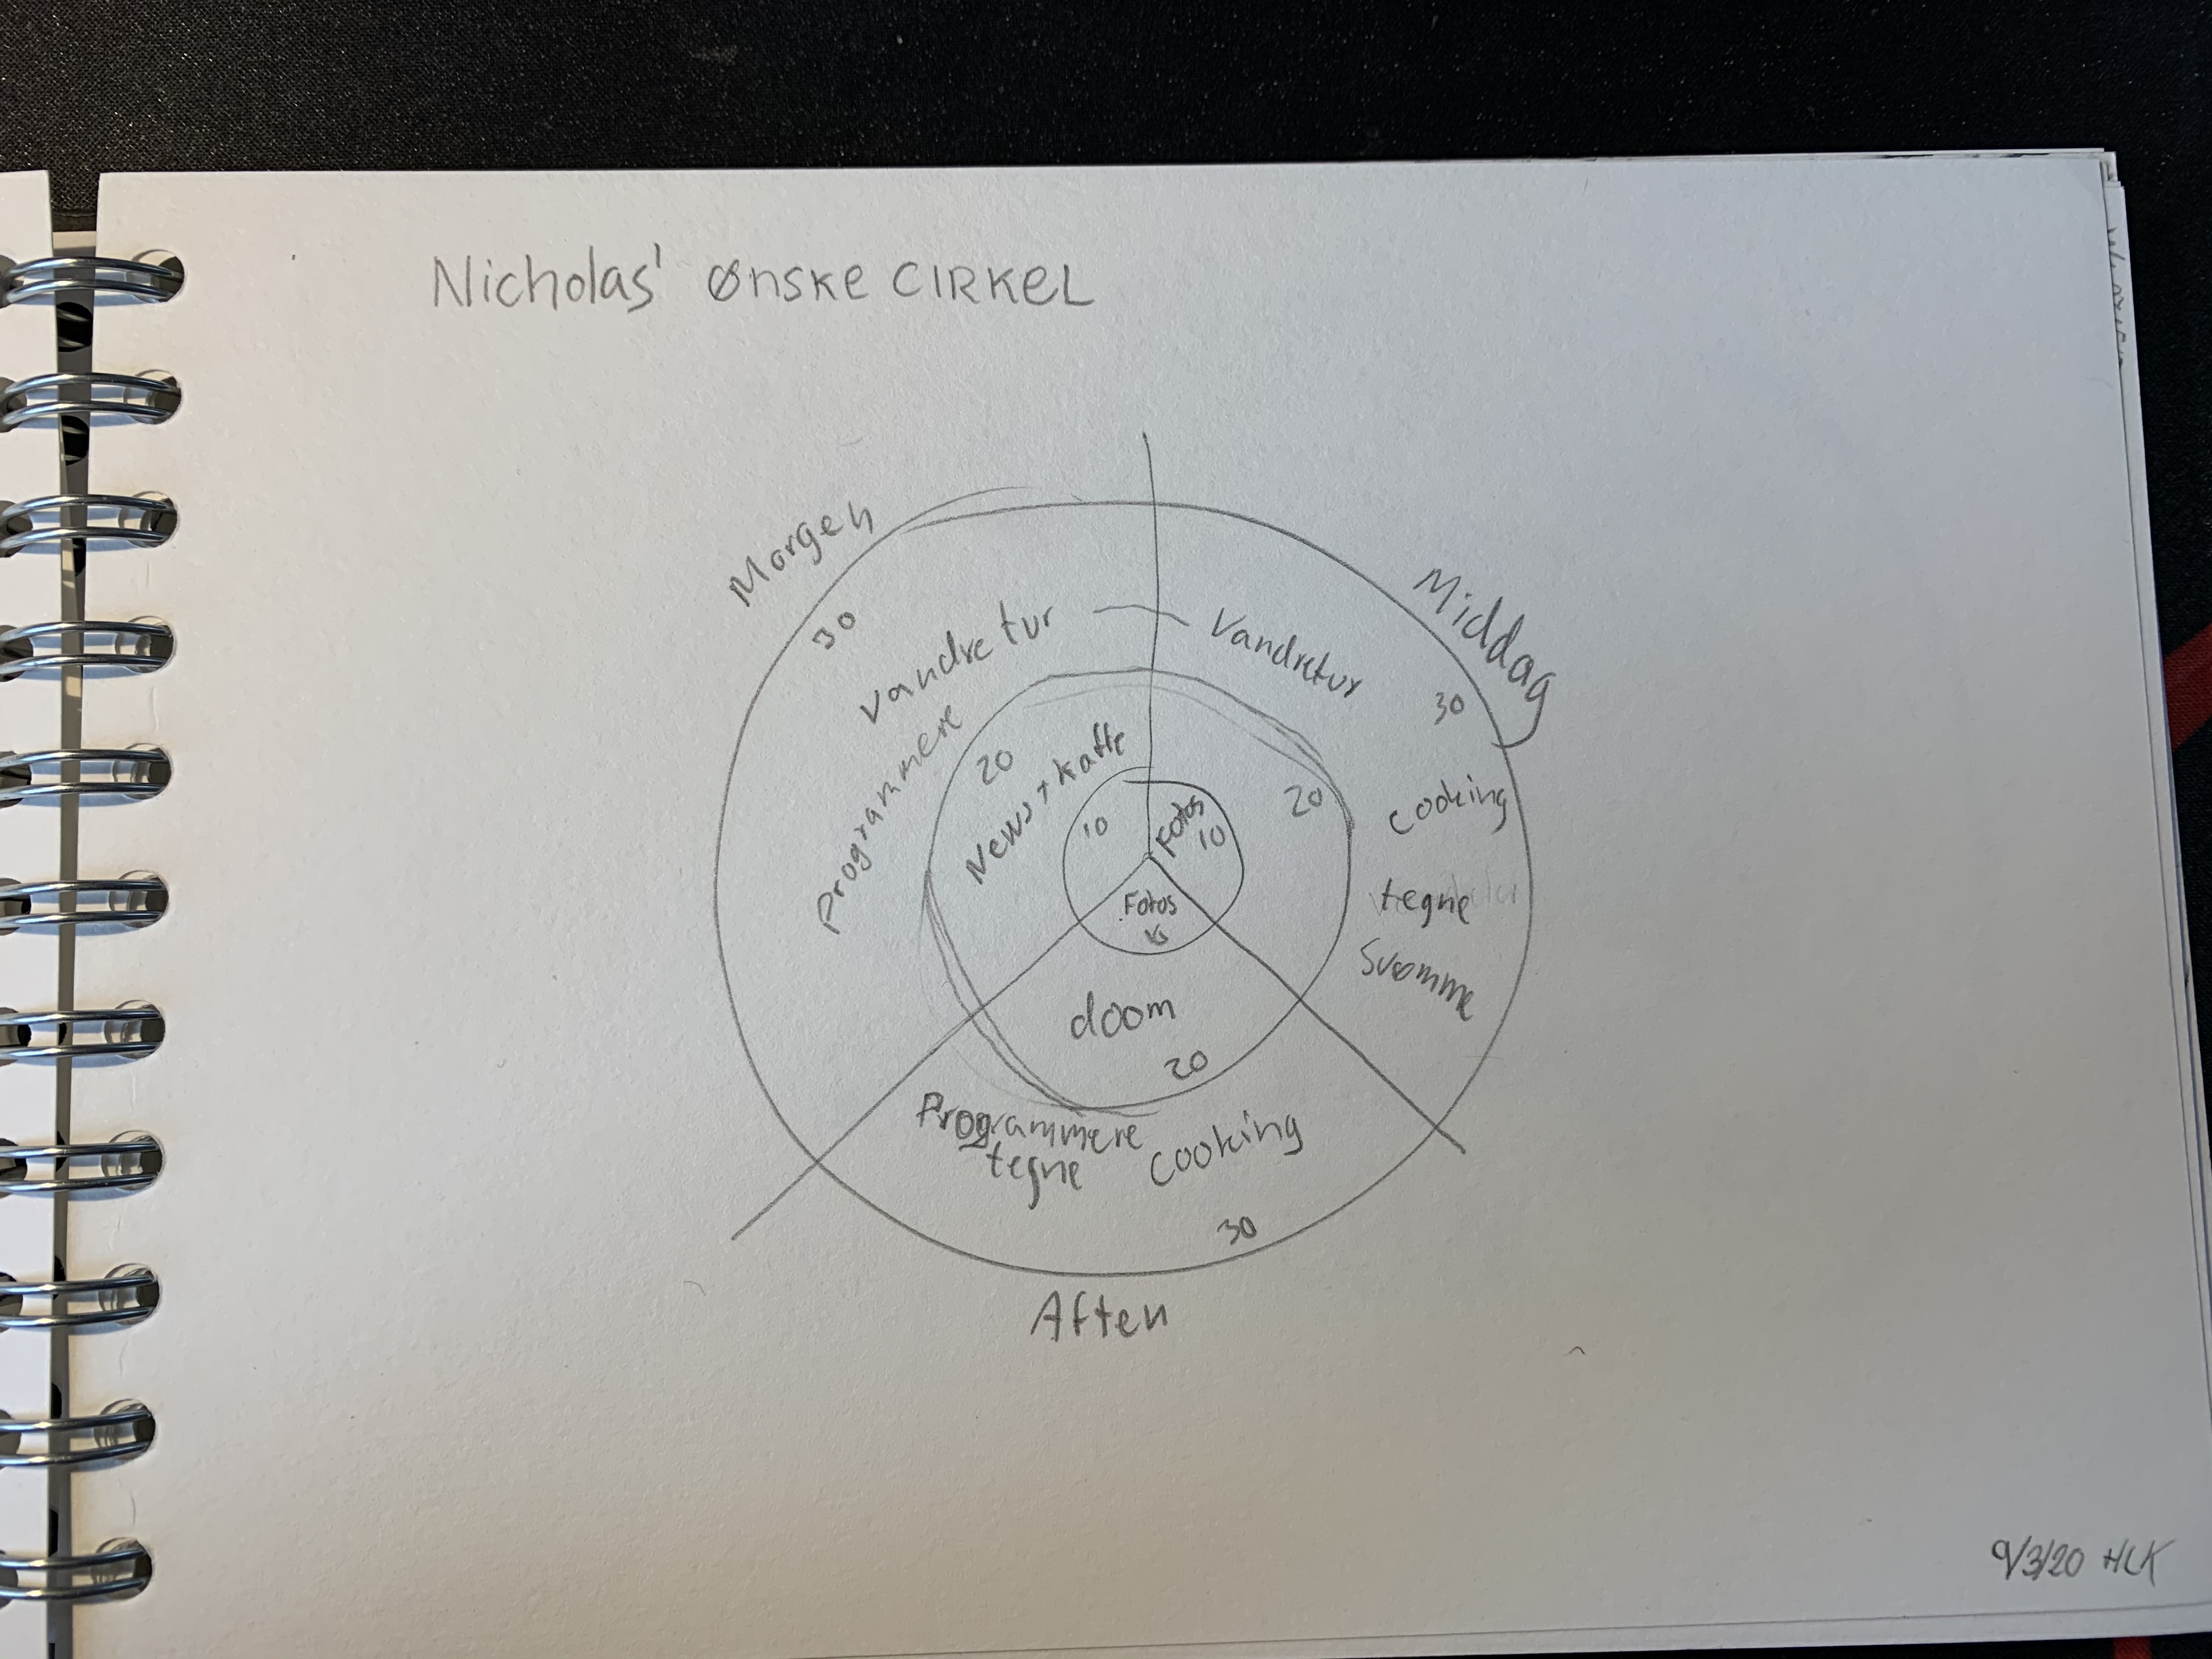 Nicholas' ØNSKE CIRKEL
Morgen
30
Vandretur
Programmere
20
News + kaffe
10
Middag
Vandretur
30
Cooking
tegne
Svømme
20
Fotos
10
Fotos
doom
20
Programmere
tegne
Cooking
30
Aften
9/3/20 HLK